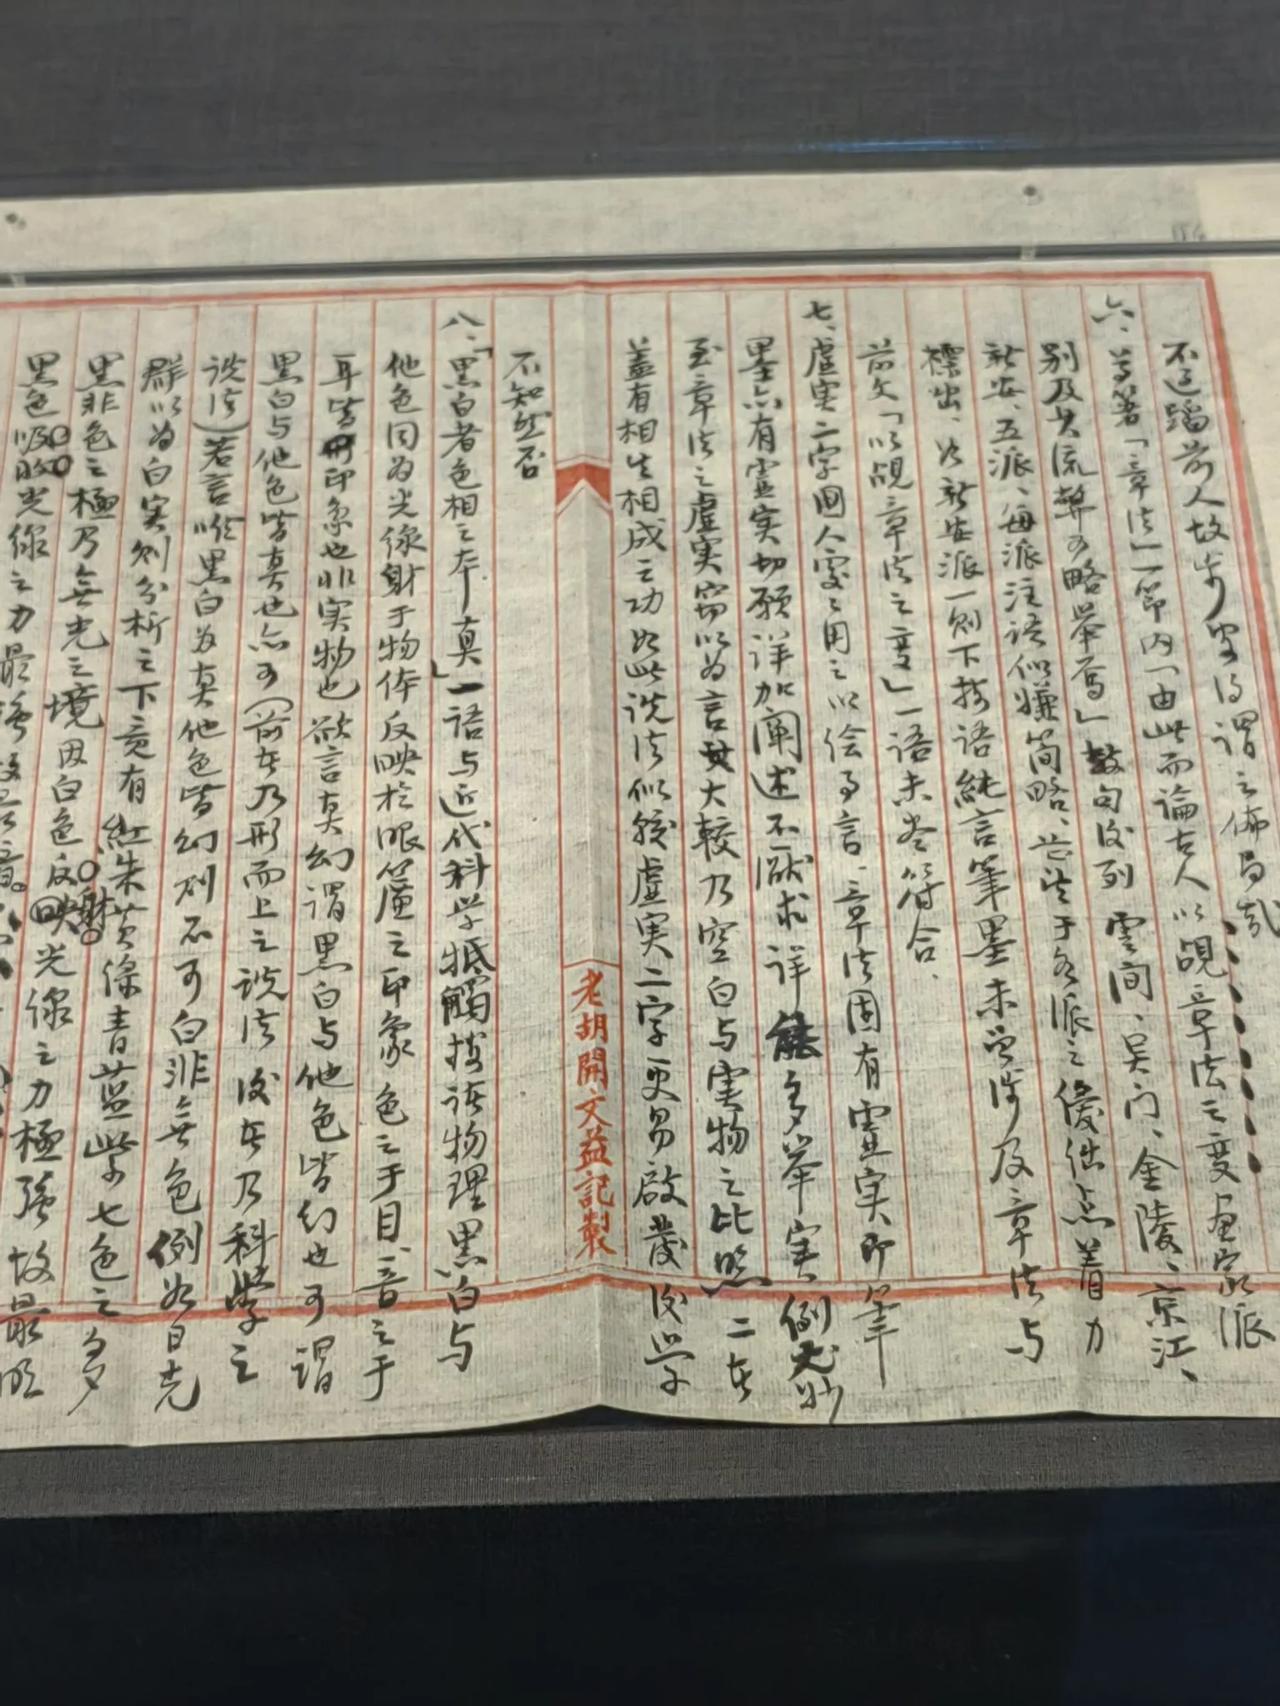 不過蹈前人故步安得謂之佈局哉
六、尊著「章法」一節内「由此而論古人以覘章法之變畫家派
別及其流弊可略举焉」数句後列 雲間、吴门、金陵、京江、
新安、五派、每派注語似嫌简略、並法于各派之優絀点着力
標出、如新安派一则下按語純言筆墨未曾涉及章法与
前文「以覘章法之變」一語未尽符合、
七、虛実二字國人變用之以绘事言、章法固有靈実即筆
墨亦有靈実切願详加阐述不厭求详能多举実例尤妙
至章法之虛実窃以为言其大較乃空白与実物之比照二者
盖有相生相成之功如此说法似较虛実二字更易啟發後学
不知然否
八、「黑白者色相之本真」一語与近代科学抵觸按诸物理黑白与
他色同为光線射于物体反映於眼簾之印象色之于目、音之于
耳皆印象也非実物也欲言真幻謂黑白与他色皆幻也可謂
黑白与他色皆真也亦可（前者乃形而上之说法後者乃科學之
说法）若言唯黑白为真他色皆幻则不可白非無色例如日光
群以为白実则分析之下竟有紅朱黄绿青蓝紫七色之多
黑非色之極乃無光之境因白色反射光線之力極强故最明
黑色吸收光線之力最强故
老胡開文益記製